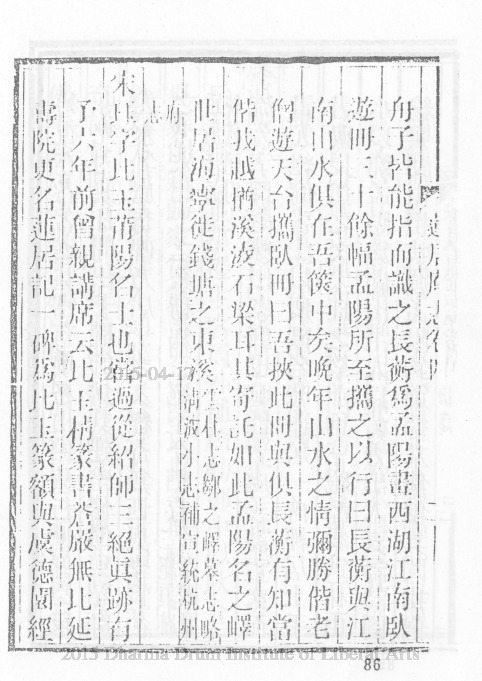 蓮居庵志卷四
舟子皆能指而識之長蘅爲孟陽畫西湖江南臥
遊冊三十餘幅孟陽所至攜之以行曰長蘅與江
南山水俱在吾篋中矣晚年山水之情彌勝偕老
僧遊天台攜臥冊曰吾挾此冊與俱長蘅有知當
偕我越楢溪渡石梁耳其寄託如此孟陽名之嶧
世居海寧徙錢塘之東溪仁和志鄒之嶧墓志略
清波小志補宣統杭州
府志
宋珏字比玉莆陽名士也嘗過從紹師三絕眞跡有
予六年前曾親講席云比玉精篆書蒼嚴無比延
壽院更名蓮居記一碑爲比玉篆額與虞德園經
2015-04-17
2015 Dharma Drum Institute of Liberal Arts
86